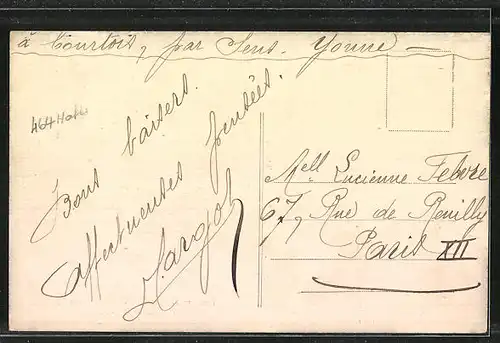 à Courtois, par Sens. Yonne —
Bons baisers.
Affectueuses pensées.
Margot
Mell Lucienne Febvre
67, Rue de Reuilly
Paris XII